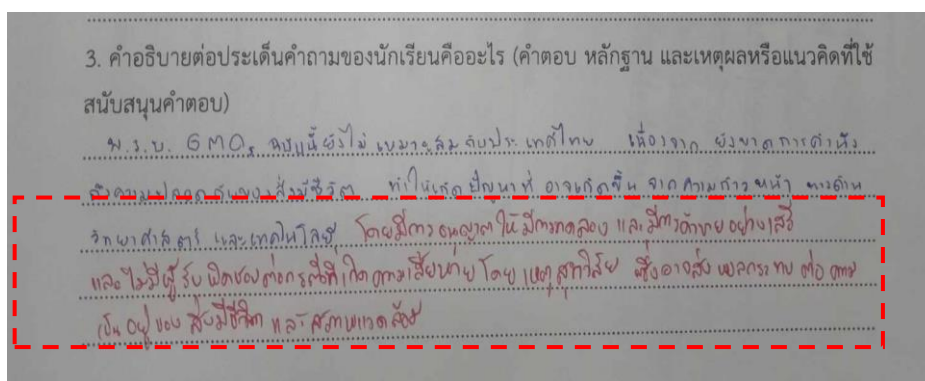 3. คำอธิบายต่อประเด็นคำถามของนักเรียนคืออะไร (คำตอบ หลักฐาน และเหตุผลหรือแนวคิดที่ใช้
สนับสนุนคำตอบ)
พ.ร.บ. GMOs ฉบับนี้ยังไม่เหมาะสมกับประเทศไทย เนื่องจาก ยังขาดการคำนึง
ถึงความปลอดภัยของสิ่งมีชีวิต ทำให้เกิดปัญหาที่อาจเกิดขึ้น จากความก้าวหน้า ทางด้าน
วิทยาศาสตร์ และเทคโนโลยี โดยมีการอนุญาตให้มีการทดลอง และมีการค้าขายอย่างเสรี
และไม่มีผู้รับผิดชอบต่อกรณีที่เกิดความเสียหายโดยเหตุสุดวิสัย ซึ่งอาจส่งผลกระทบต่อความ
เป็นอยู่ของสิ่งมีชีวิต และสภาพแวดล้อม